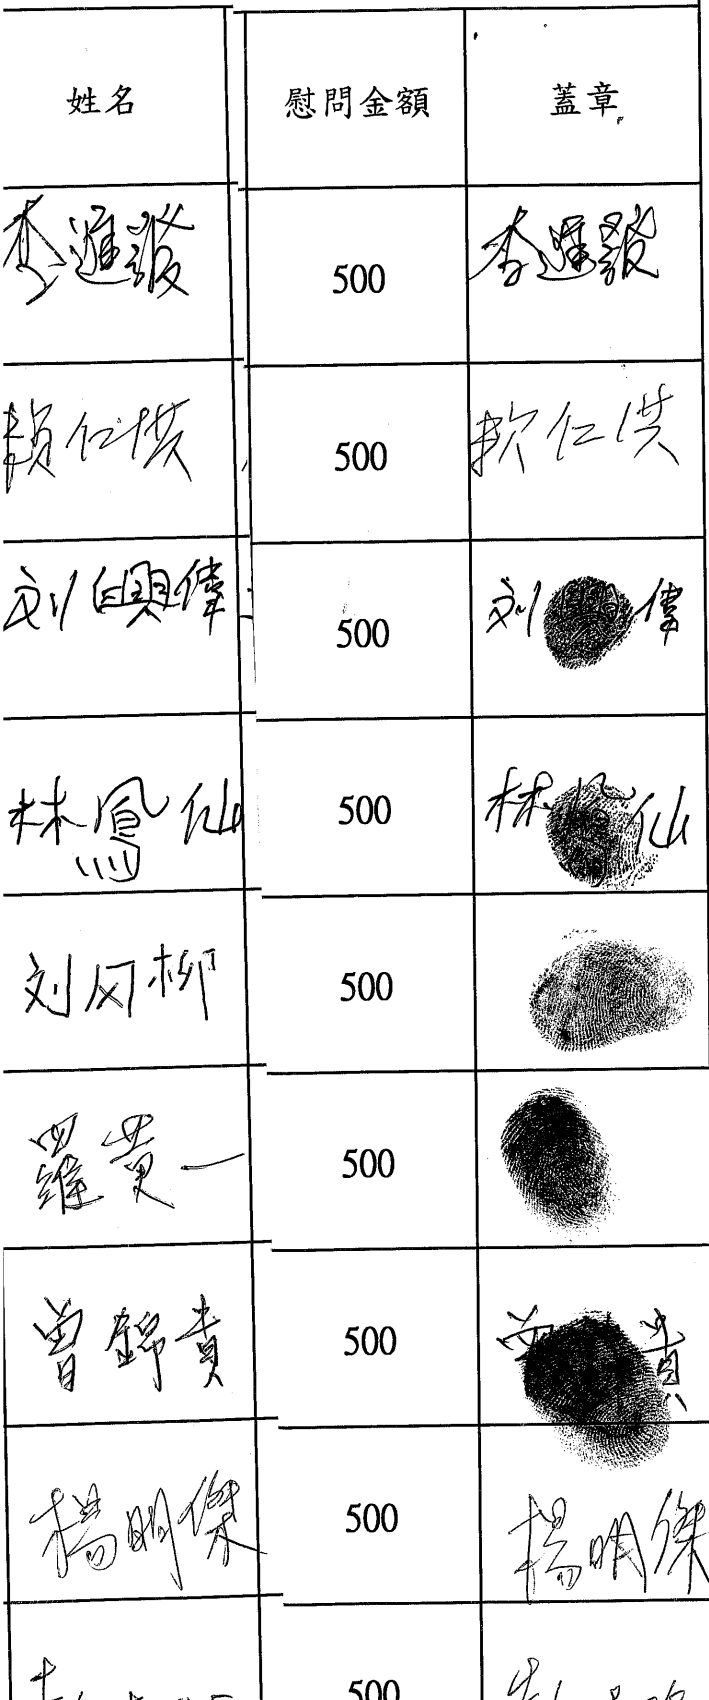 姓名 慰問金額 蓋章
李進發 500 李進發
賴仁洪 500 仁洪
刘興偉 500 刘興偉
林鳳仙 500 林鳳仙
刘风柳 500
羅黄一 500
曾錦貴 500 曾 貴
楊明傑 500 楊明傑
500